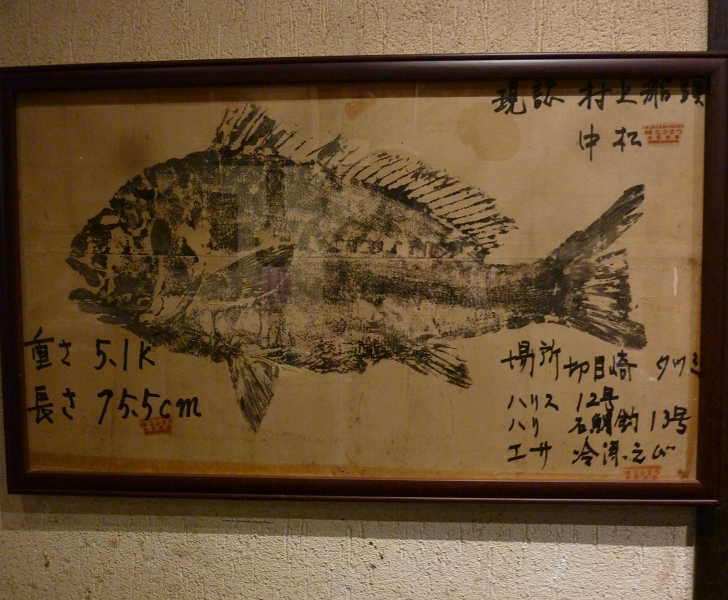 現認 村上船頭
仲松
重さ 5.1K
長さ 75.5cm
場所 切目崎 タツミ
ハリス 12号
ハリ 石鯛鈎 13号
エサ 冷凍えび